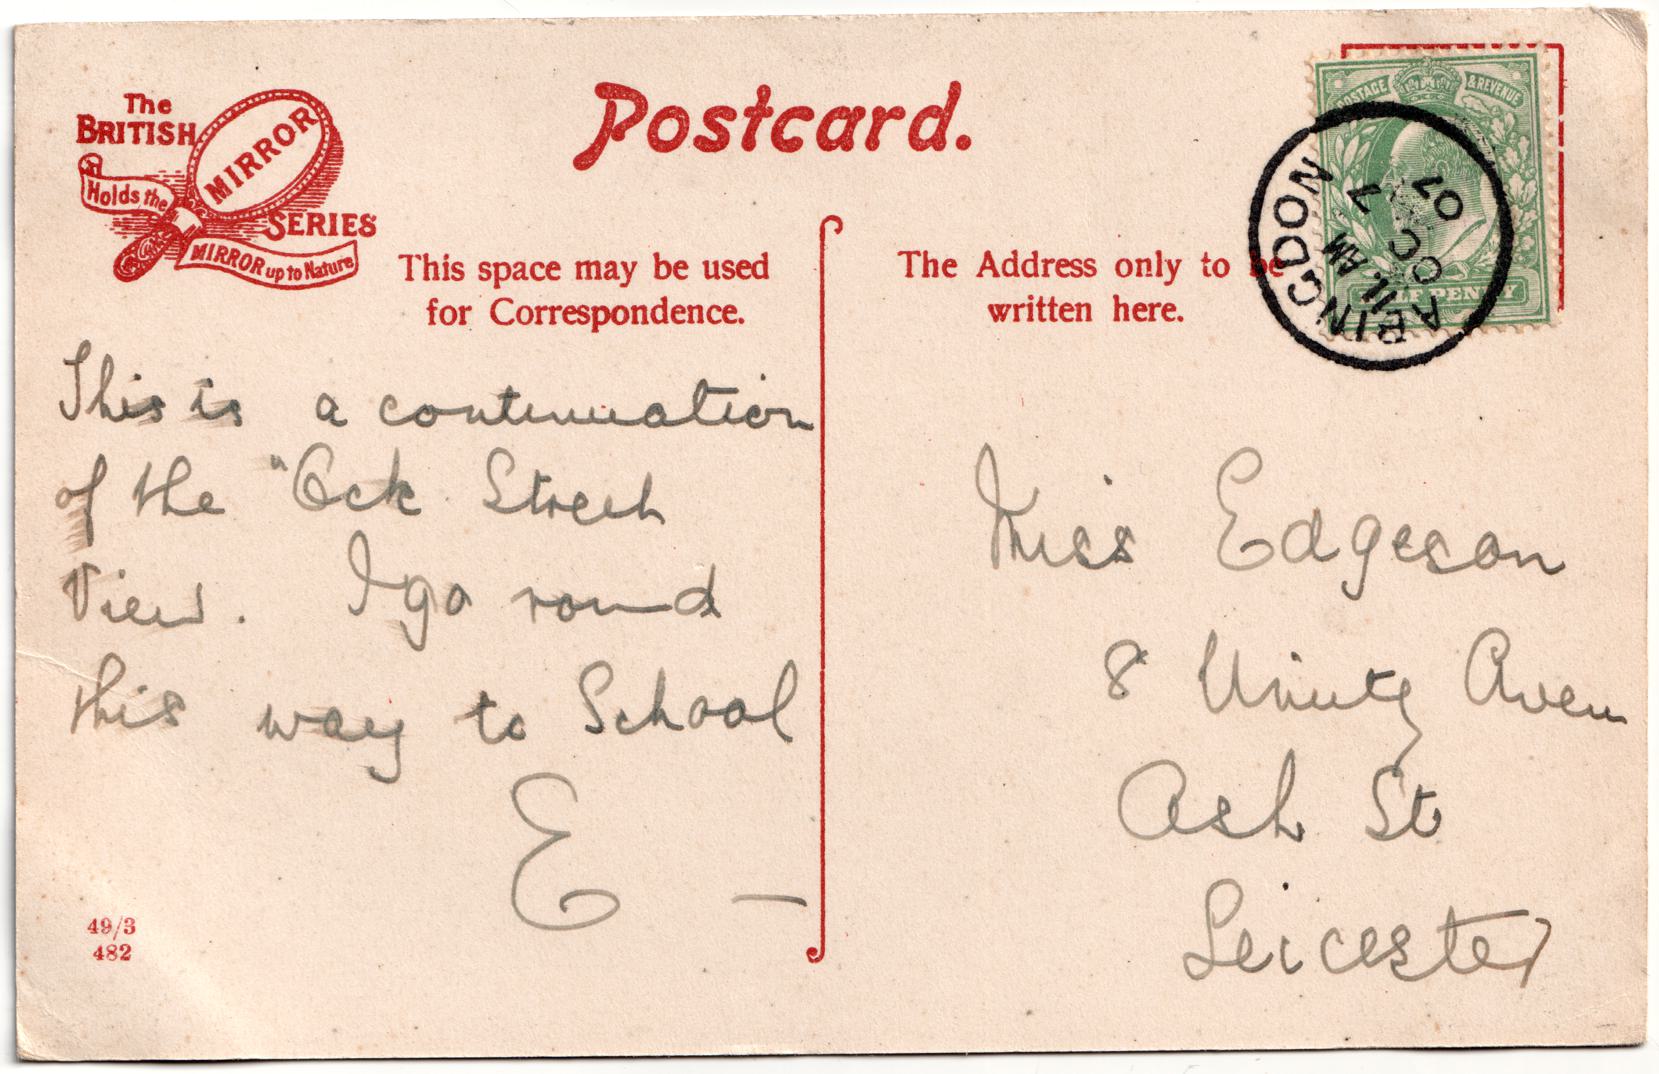 The
BRITISH
MIRROR
SERIES
Holds the
MIRROR up to Nature
Postcard.
This space may be used
for Correspondence.
The Address only to be
written here.
POSTAGE & REVENUE
HALF PENNY
ABINGDON
11. AM
7
OC
07
This is a continuation
of the "Ock Street
View. I go round
this way to School
E —
Miss Edgeson
8 Unity Aven
Ash St
Leicester
49/3
482